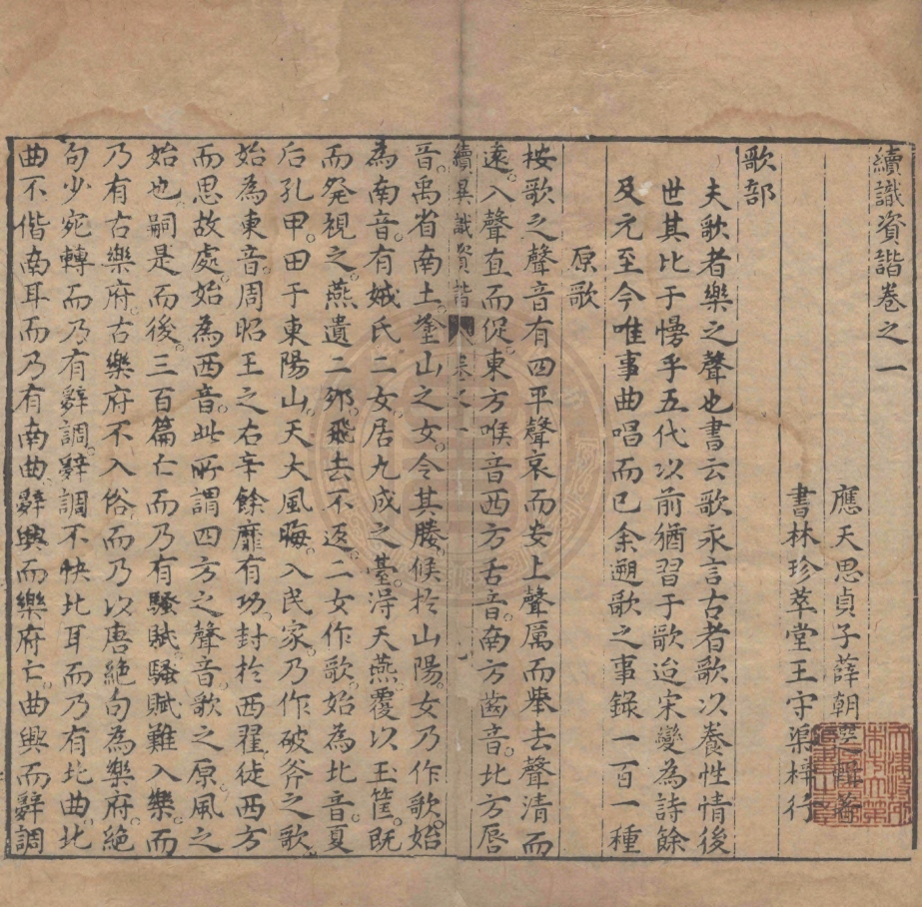 續識資諧卷之一
應天思貞子薛朝選輯著
書林珍萃堂王守渠梓行
歌部
夫歌者樂之聲也書云歌永言古者歌以養性情後
世其比于慢乎五代以前猶習于歌迨宋變為詩餘
及元至今唯事曲唱而已余遡歌之事録一百一種
原歌
按歌之聲音有四平聲哀而安上聲厲而舉去聲清而
遠。入聲直而促。東方喉音西方舌音。南方齒音。北方唇
續異識資諧 卷之一
音。禹省南土。塗山之女。令其媵。候於山陽。女乃作歌。始
為南音。有娀氏二女。居九成之臺。淂天燕。覆以玉筐。既
而發視之。燕遺二卵。飛去不返。二女作歌。始為北音。夏
后孔甲。田于東陽山。天大風晦。入民家。乃作破斧之歌
始為東音。周昭王之右辛餘靡有功。封於西翟。徒西方
而思故處。始為西音。此所謂四方之聲音歌之原。風之
始也。嗣是而後。三百篇亡而乃有騷賦。騷賦難入樂。而
乃有古樂府。古樂府不入俗。而乃以唐絕句為樂府。絕
句少宛轉。而乃有辭調。辭調不快北耳。而乃有北曲。北
曲不偕南耳。而乃有南曲。辭興而樂府亡。曲興而辭調